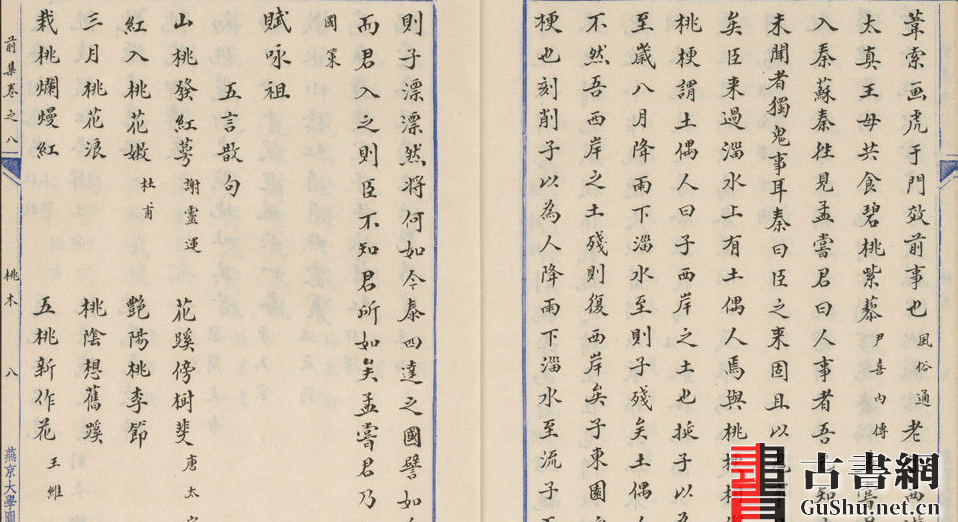 葦索画虎于門效前事也 風俗通 老
太真王母共食碧桃紫蔾 尹喜内傳
入秦蘇秦徃見孟嘗君曰人事者吾
未聞者獨鬼事耳秦曰臣之来固且以
矣臣来過淄水上有土偶人焉與桃
桃梗謂土偶人曰子西岸之土也挻子以為
至歲八月降雨下淄水至則子殘矣土偶人
不然吾西岸之土殘則復西岸矣子東園
梗也刻削子以為人降雨下淄水至流子
則子漂漂然将何如今秦四達之國譬如
而君入之則臣不知君所如矣孟嘗君乃
國策
賦咏祖
五言散句
山桃發紅萼 謝靈運 花蹊傍樹斐 唐太
紅入桃花嫩 杜甫 艷陽桃李節
三月桃花浪 桃陰想舊蹊
栽桃爛熳紅 五桃新作花 王維
前集卷之八 桃木 八 燕京大學圖
古書網
GuShu.net.cn